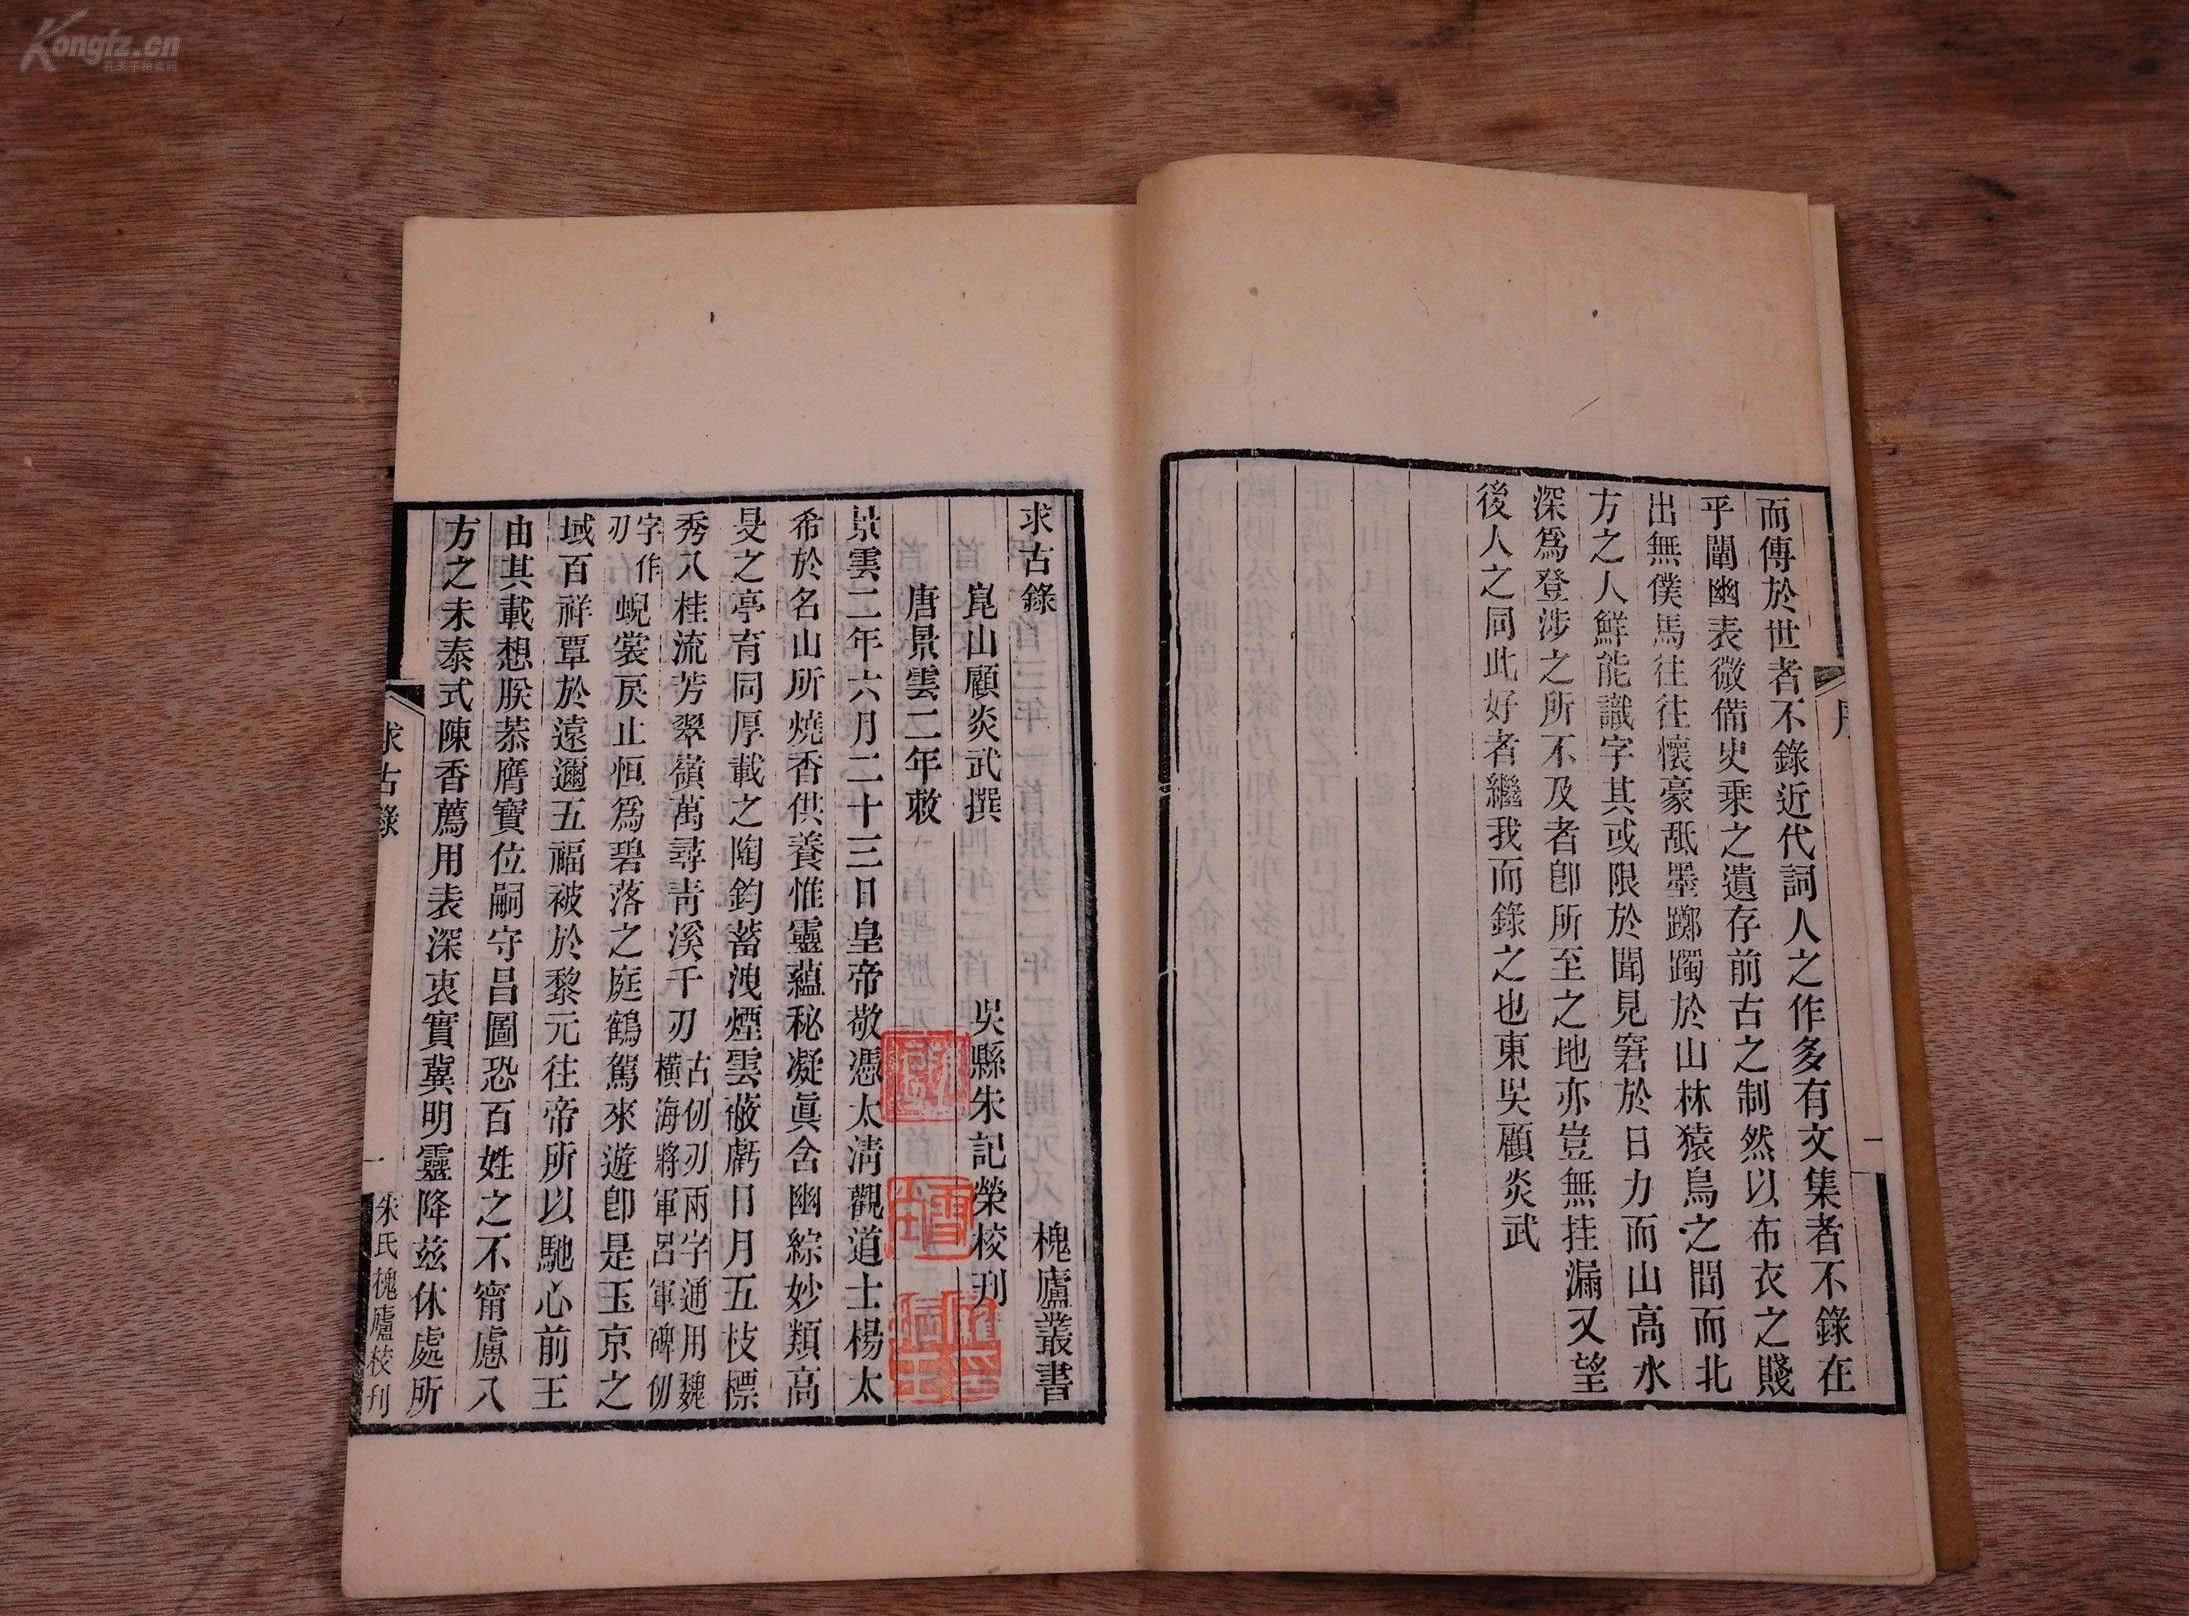 而傳於世者不錄近代詞人之作多有文集者不錄在
乎闡幽表微備史乘之遺存前古之制然以布衣之賤
出無僕馬往往懷豪舐墨躑躅於山林猿鳥之間而北
方之人鮮能識字其或限於聞見窘於日力而山高水
深爲登涉之所不及者卽所至之地亦豈無挂漏又望
後人之同此好者繼我而錄之也東吳顧炎武
序
一
求古錄
槐廬叢書
崑山顧炎武撰
吳縣朱記榮校刊
唐景雲二年敕
景雲二年六月二十三日皇帝敬憑太清觀道士楊太
希於名山所燒香供養惟靈蘊秘凝眞含幽綜妙類高
旻之亭育同厚載之陶鈞蓄洩煙雲蔽虧日月五枝標
秀八桂流芳翠嶺萬尋靑溪千刃
古仞刃兩字通用魏
橫海將軍呂軍碑仞
字作
刃
蜺裳戾止恒爲碧落之庭鶴駕來遊卽是玉京之
域百祥覃於遠邇五福被於黎元往帝所以馳心前王
由其載想朕恭膺寶位嗣守昌圖恐百姓之不甯慮八
方之未泰式陳香薦用表深衷實冀明靈降茲休處所
求古錄
一
朱氏槐廬校刊
Kongfz.cn
孔夫子拍卖网